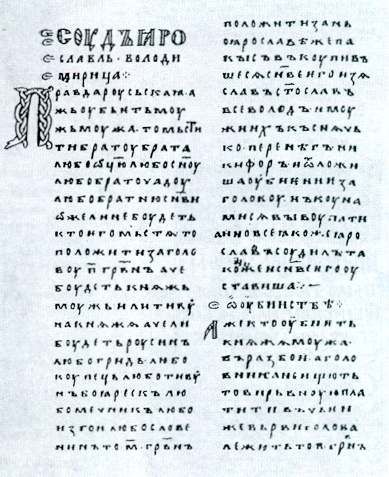 СОУДЪ ꙖРО
СЛАВЛЬ ВОЛОДИ
МИРИЦА
Правда роусьскаꙗ. а
жь оубиѥть моу
жь моужа. то мьсти
ти братоу брата
любо ѡц҃ю любо сн҃оу
любо братоучадоу
любо братню сн҃ви
ѡже ли не боудеть
кто ѥго мьстѧ то
положити за голо
воу п҃ грв҃нъ аче
боудеть кнѧжь
моужь или тивоу
на кнѧжѧ аче ли
боудеть роусинъ
любо гридь любо
коупець любо тивоу
нъ боꙗрескъ лю
бо мечникъ любо
изгои любо слове
нинъ то м҃ грв҃нъ
положити за нь
по ꙗрославѣ же па
кы съвъкоупивъ
шесѧ сн҃ве ѥго изѧ
славъ ст҃ославъ
всеволодъ и моу
жи ихъ къснѧчь
ко перенѣгъ ни
кифоръ и ѿложи
ша оубиѥниѥ за
головоу нъ коуна
ми сѧ выкоупати
а ино все ꙗкоже ꙗро
славъ соудилъ та
коже и сн҃ве ѥго оу
ставиша
ѡ оубииствѣ
Аже кто оубиѥть
кнѧжѧ моужа
въ разбои а голо
вника не ищють
то вирьвноую пла
тити въ чьѥи
же вьрви голова
лежить то п҃ грв҃нъ